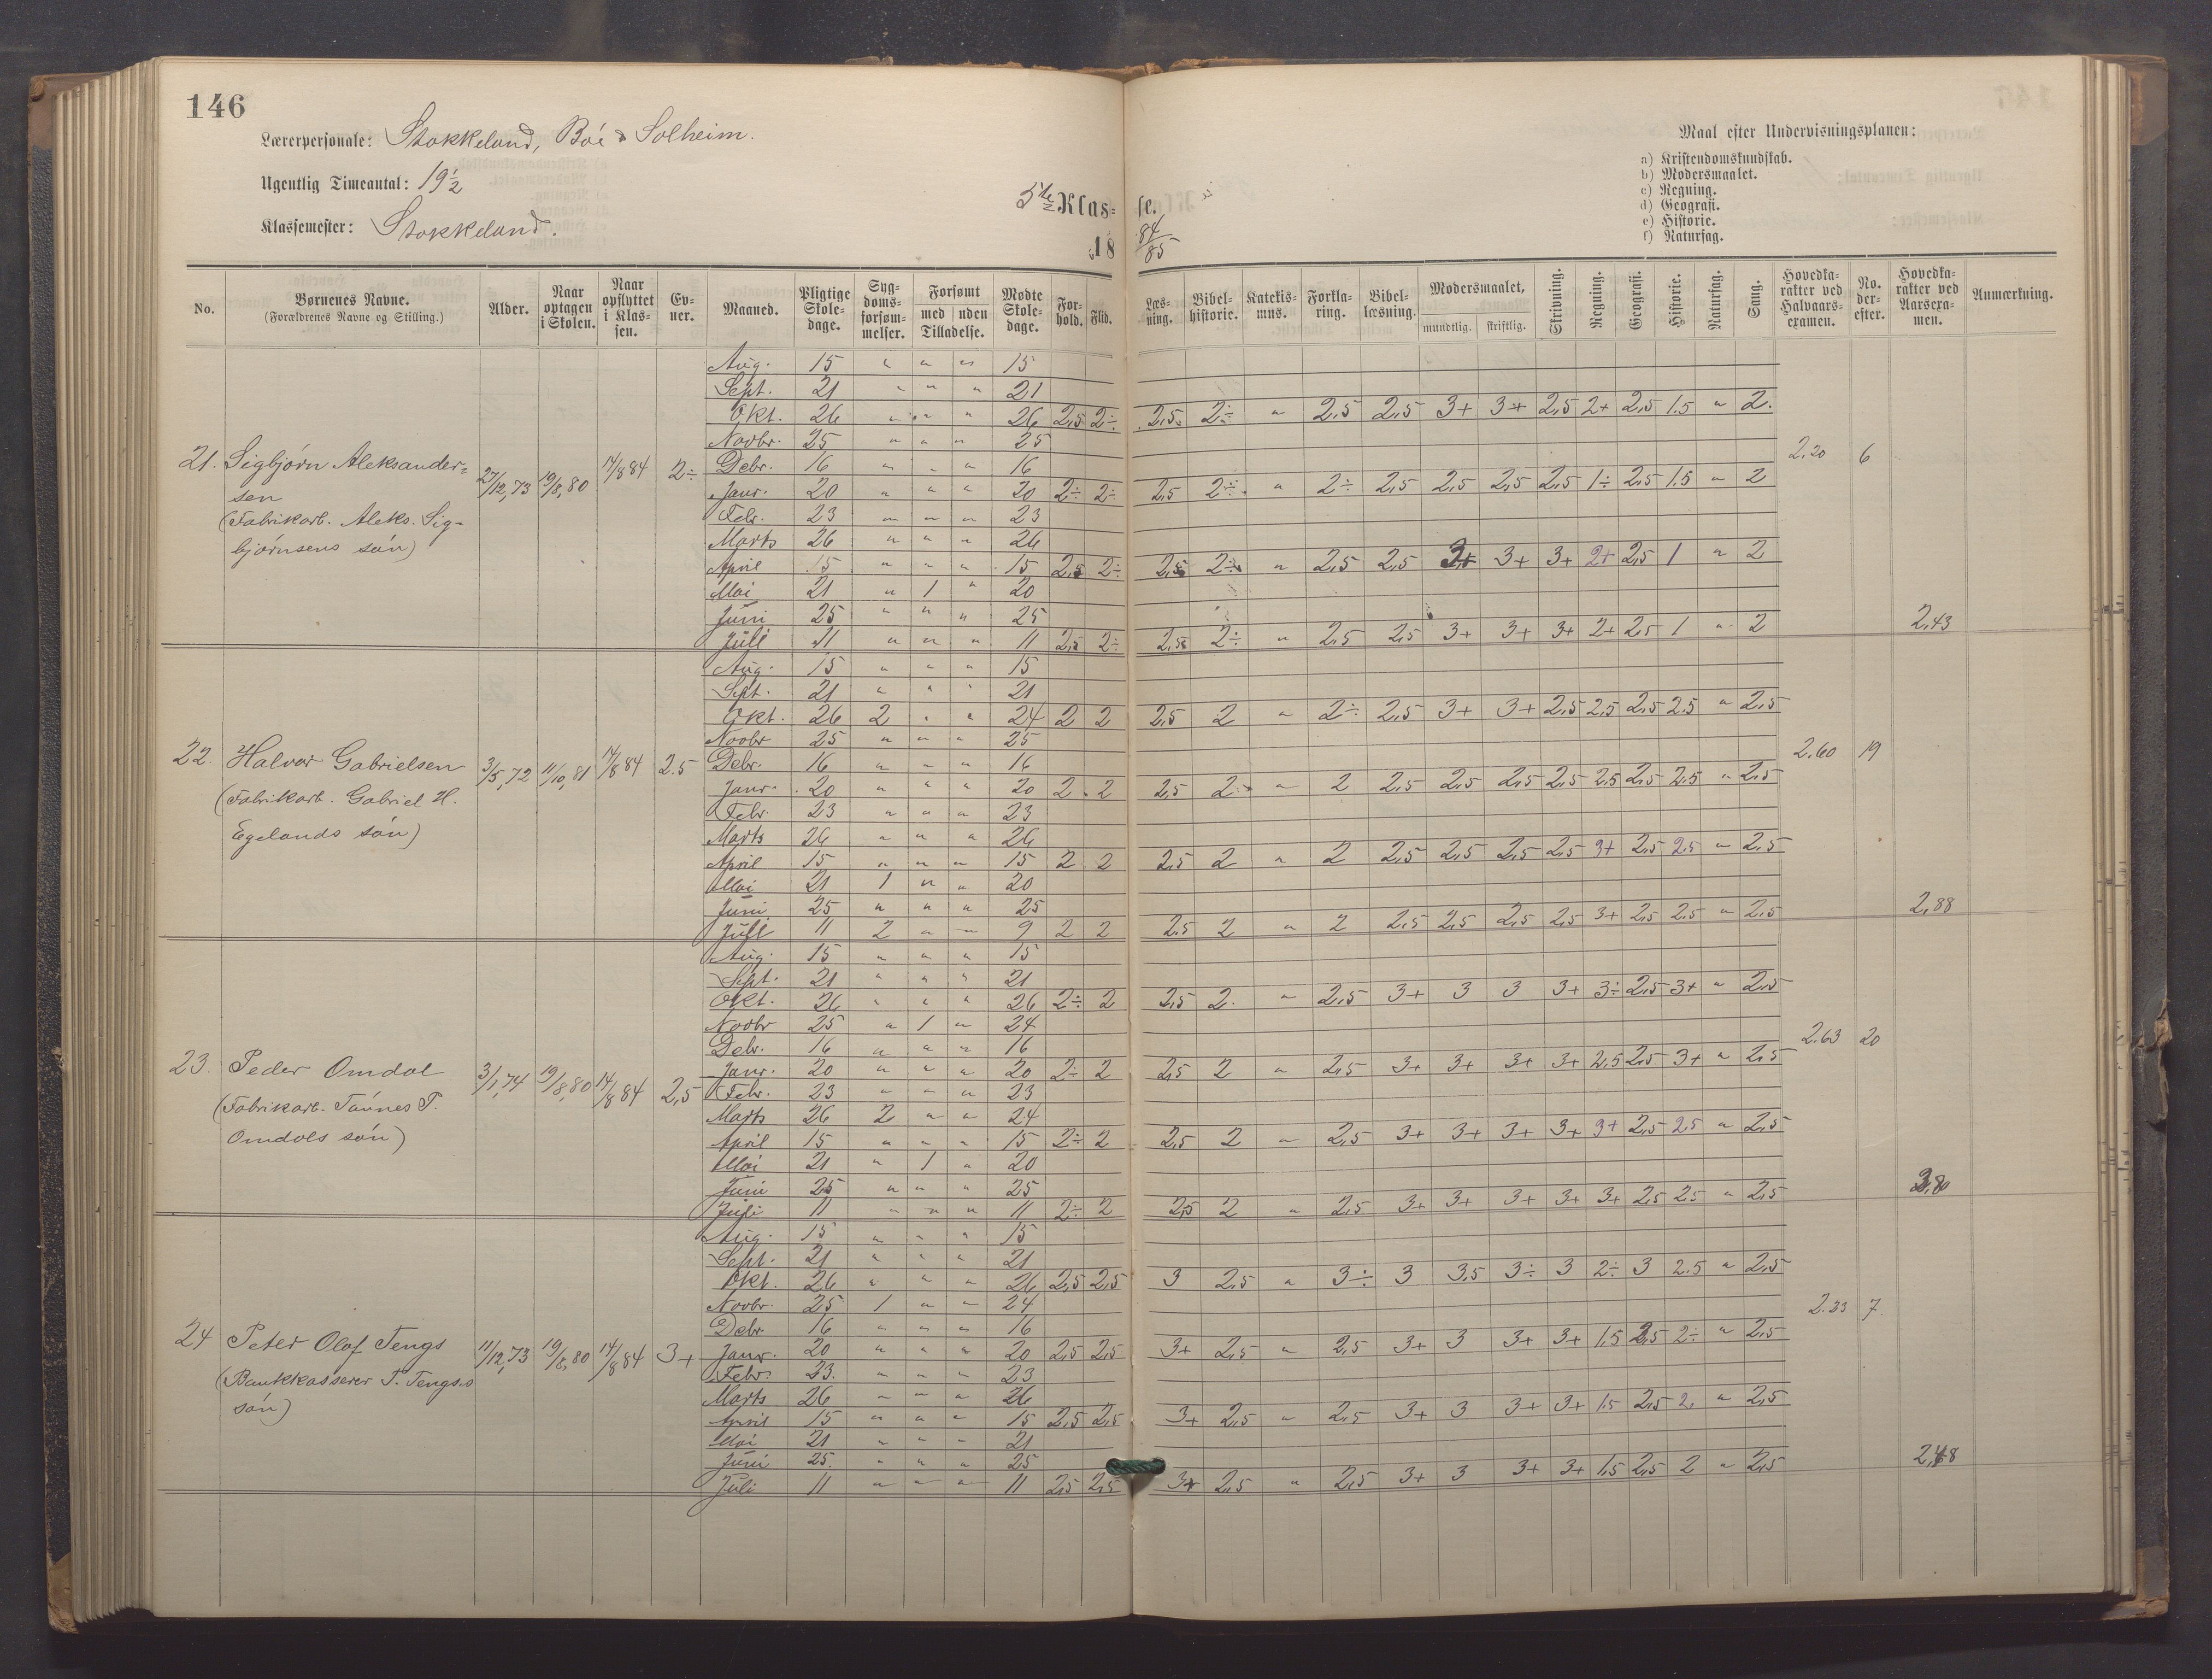 146
Lærerpersonale: Stokkeland, Boé & Solheim.
Ugentlig Timeantal: 19½
Klassemester: Stokkeland.
5te Klas= se.
18 84/85
Maal efter Undervisningsplanen:
a) Kristendomskundskab.
b) Modersmaalet.
c) Regning.
d) Geografi.
e) Historie.
f) Naturfag.
No. Børnenes Navne. (Forældrenes Navne og Stilling.) Alder. Naar optagen i Skolen. Naar opflyttet i Klassen. Evner. Maaned. Pligtige Skoledage. Sygdomsforsømmelser. Forsømt med uden Tilladelse. Mødte Skoledage. Forhold. Flid. Læsning. Bibelhistorie. Katekismus. Forklaring. Bibellæsning. Modersmaalet, mundtlig. skriftlig. Skrivning. Regning. Geografi. Historie. Naturfag. Sang. Hovedkarakter ved Halvaarsexamen. No. derefter. Hovedkarakter ved Aarsexamen. Anmærkning.
Aug. 15 " " " 15
Sept. 21 " " " 21
Okt. 26 " " " 26 2,5 2÷ 2,5 2÷ " 2,5 2,5 3+ 3+ 2,5 2+ 2,5 1.5 " 2.
Novbr. 25 " " " 25
21. Sigbjørn Aleksander= 27/12,73 19/8,80 14/8 84 2÷ Debr. 16 " " " 16 2.20 6
sen Janr. 20 " " " 20 2÷ 2÷ 2,5 2÷ " 2÷ 2,5 2,5 2,5 2,5 1÷ 2,5 1.5 " 2
(Fabrikarb. Aleks. Sig- Febr. 23 " " " 23
bjørnsens søn) Marts 26 " " " 26
April 15 " " " 15 2,5 2÷ 2,5 2÷ " 2,5 2,5 3+ 3+ 3+ 2+ 2,5 1 " 2
Mai 21 " 1 " 20
Juni 25 " " " 25 2,43
Juli 11 " " " 11 2,5 2÷ 2,5 2÷ " 2,5 2,5 3+ 3+ 3+ 2+ 2,5 1 " 2
Aug. 15 " " " 15
Sept. 21 " " " 21
Okt. 26 2 " " 24 2 2 2,5 2 " 2÷ 2,5 3+ 3+ 2,5 2,5 2,5 2.5 " 2,5
Novbr 25 " " " 25
22. Halvor Gabrielsen 3/5,72 11/10,81 14/8 84 2.5 Debr. 16 " " " 16 2.60 19
(Fabrikarb. Gabriel H. Janr. 20 " " " 20 2 2 2,5 2 " 2 2,5 2,5 2,5 2,5 2,5 2,5 2.5 " 2,5
Egelands søn) Febr. 23 " " " 23
Marts 26 " " " 26
April 15 " " " 15 2 2 2,5 2 " 2 2,5 2,5 2,5 2,5 3+ 2,5 2.5 " 2,5
Mai 21 1 " " 20
Juni 25 " " " 25 2,88
Juli 11 2 " " 9 2 2 2.5 2 " 2 2,5 2,5 2,5 2,5 3+ 2,5 2.5 " 2,5
Aug. 15 " " " 15
Sept. 21 " " " 21
Okt. 26 " " " 26 2÷ 2 2,5 2. " 2,5 3+ 3 3 3+ 3÷ 2,5 3+ " 2,5
Novbr 25 " 1 " 24
Debr. 16 " " " 16 2.63 20
23. Peder Omdal 3/1,74 19/8,80 14/8 84 2,5 Janr. 20 " " " 20 2÷ 2 2,5 2 " 2,5 3+ 3+ 3+ 3+ 2,5 2,5 3+ " 2,5
(Fabrikarb. Tønnes P. Febr. 23 " " " 23
Omdals søn) Marts 26 2 " " 24
April 15 " " " 15 2÷ 2 2,5 2 " 2,5 3+ 3+ 3+ 3+ 3+ 2,5 2.5 " 2,5
Mai 21 " 1 " 20
Juni 25 " " " 25
Juli 11 " " " 11 2÷ 2 2,5 2 " 2,5 3+ 3+ 3+ 3+ 3+ 2,5 2,5 " 2,5
Aug. 15 " " " 15
Sept. 21 " " " 21
Okt. 26 " " " 26 2,5 2,5 3 2,5 " 3÷ 3 3,5 3÷ 3 2÷ 3 2.5 " 2,5
Novbr. 25 1 " " 24
Debr 16 " " " 16 2.23 7
24 Peter Olaf Tengs 11/12,73 19/8,80 14/8 84 3+ Janr. 20 " " " 20 2,5 2,5 3+ 2,5 " 2,5 3+ 3 3+ 3+ 1.5 2,5 2÷ " 2,5
(Bankkasserer P. Tengs.s Febr. 23. " " " 23
søn) Marts 26 " " " 26
April 15 " " " 15 2,5 2,5 3+ 2,5 " 2,5 3+ 3 3+ 3+ 1.5 2,5 2. " 2,5
Mai 21 " " " 21
Juni 25. " " " 25
Juli 11 " " " 11 2,5 2,5 3+ 2,5 " 2,5 3+ 3 3+ 3+ 1,5 2,5 2 " 2,5